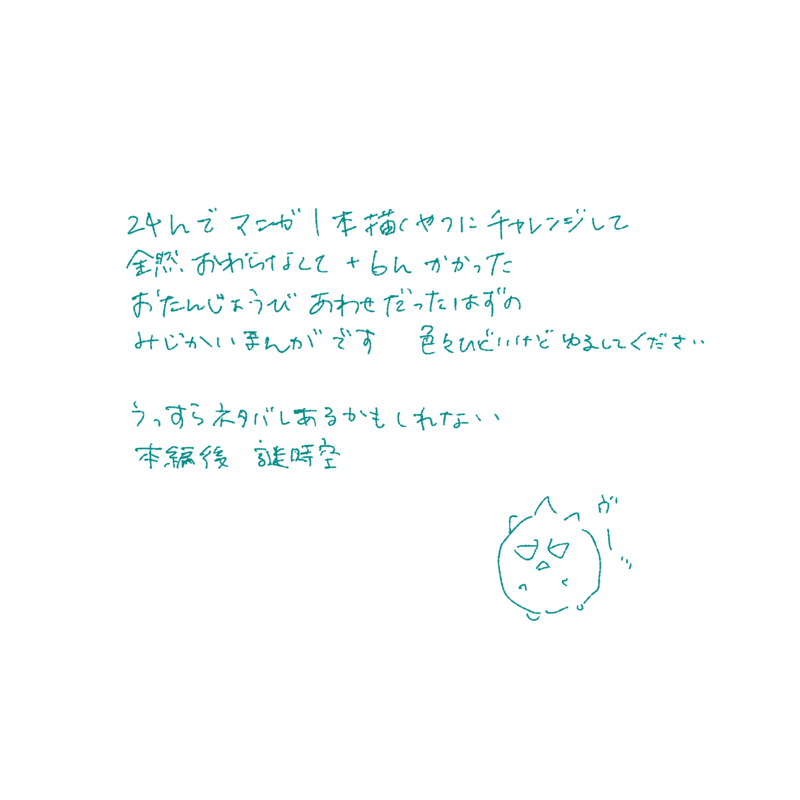 24hでマンガ1本描くやつにチャレンジして
全然おわらなくて+6hかかった
おたんじょうびあわせだったはずの
みじかいまんがです 色々ひどいけどゆるしてください
うっすらネタバレあるかもしれない
本編後 謎時空
ヴーッ